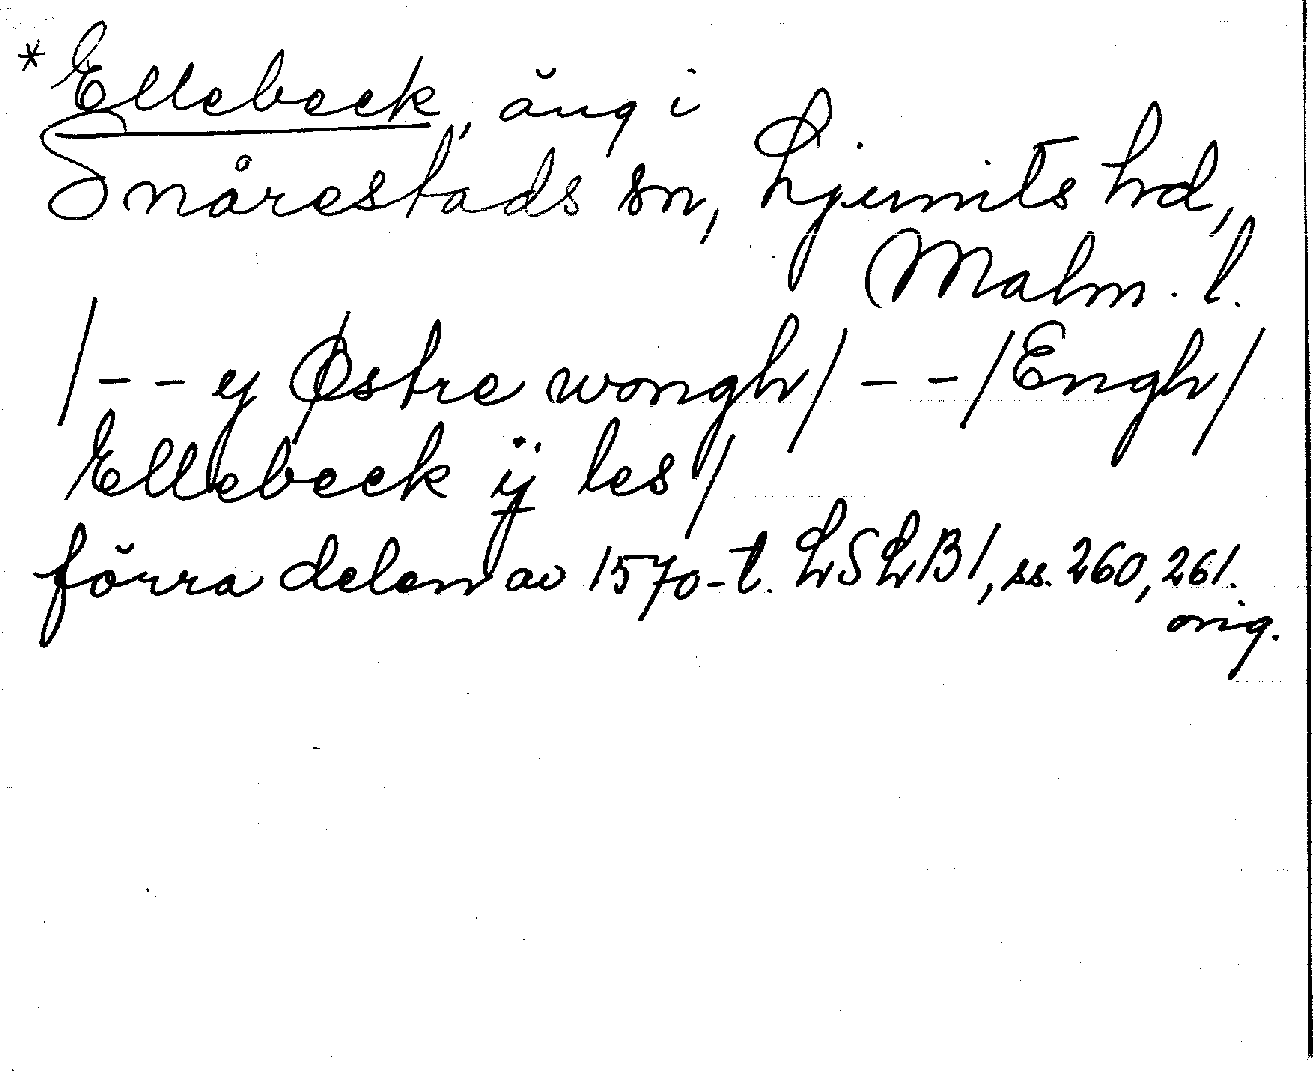 * Ellebeck, äng i
Snårestads sn, Ljunits hd,
Malm. l.
/-- y Østre wongh/ -- /Engh/
Ellebeck ÿ les/
förra delen av 1570-t. LSLB1, ss. 260, 261.
orig.